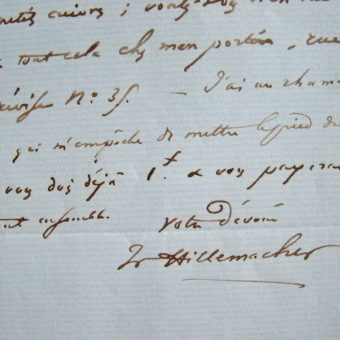 cuivre ; voulez
tout cela chez mon portier, rue
N.o 35. — J'ai un rhume
qui m'empêche de mettre le pied
vous dois déjà 1.f à vous payer
ensemble.
votre dévoué
Hillemacher